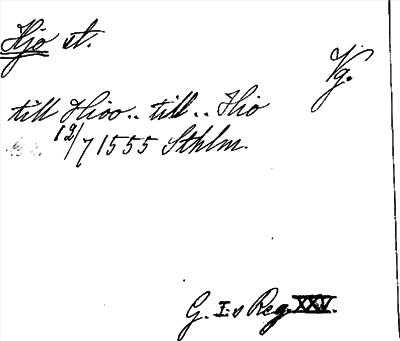 Hjo st.
Vg.
till Hioo.. till .. Hio
12/7 1555 Sthlm.
G. I:s Reg. XXV.